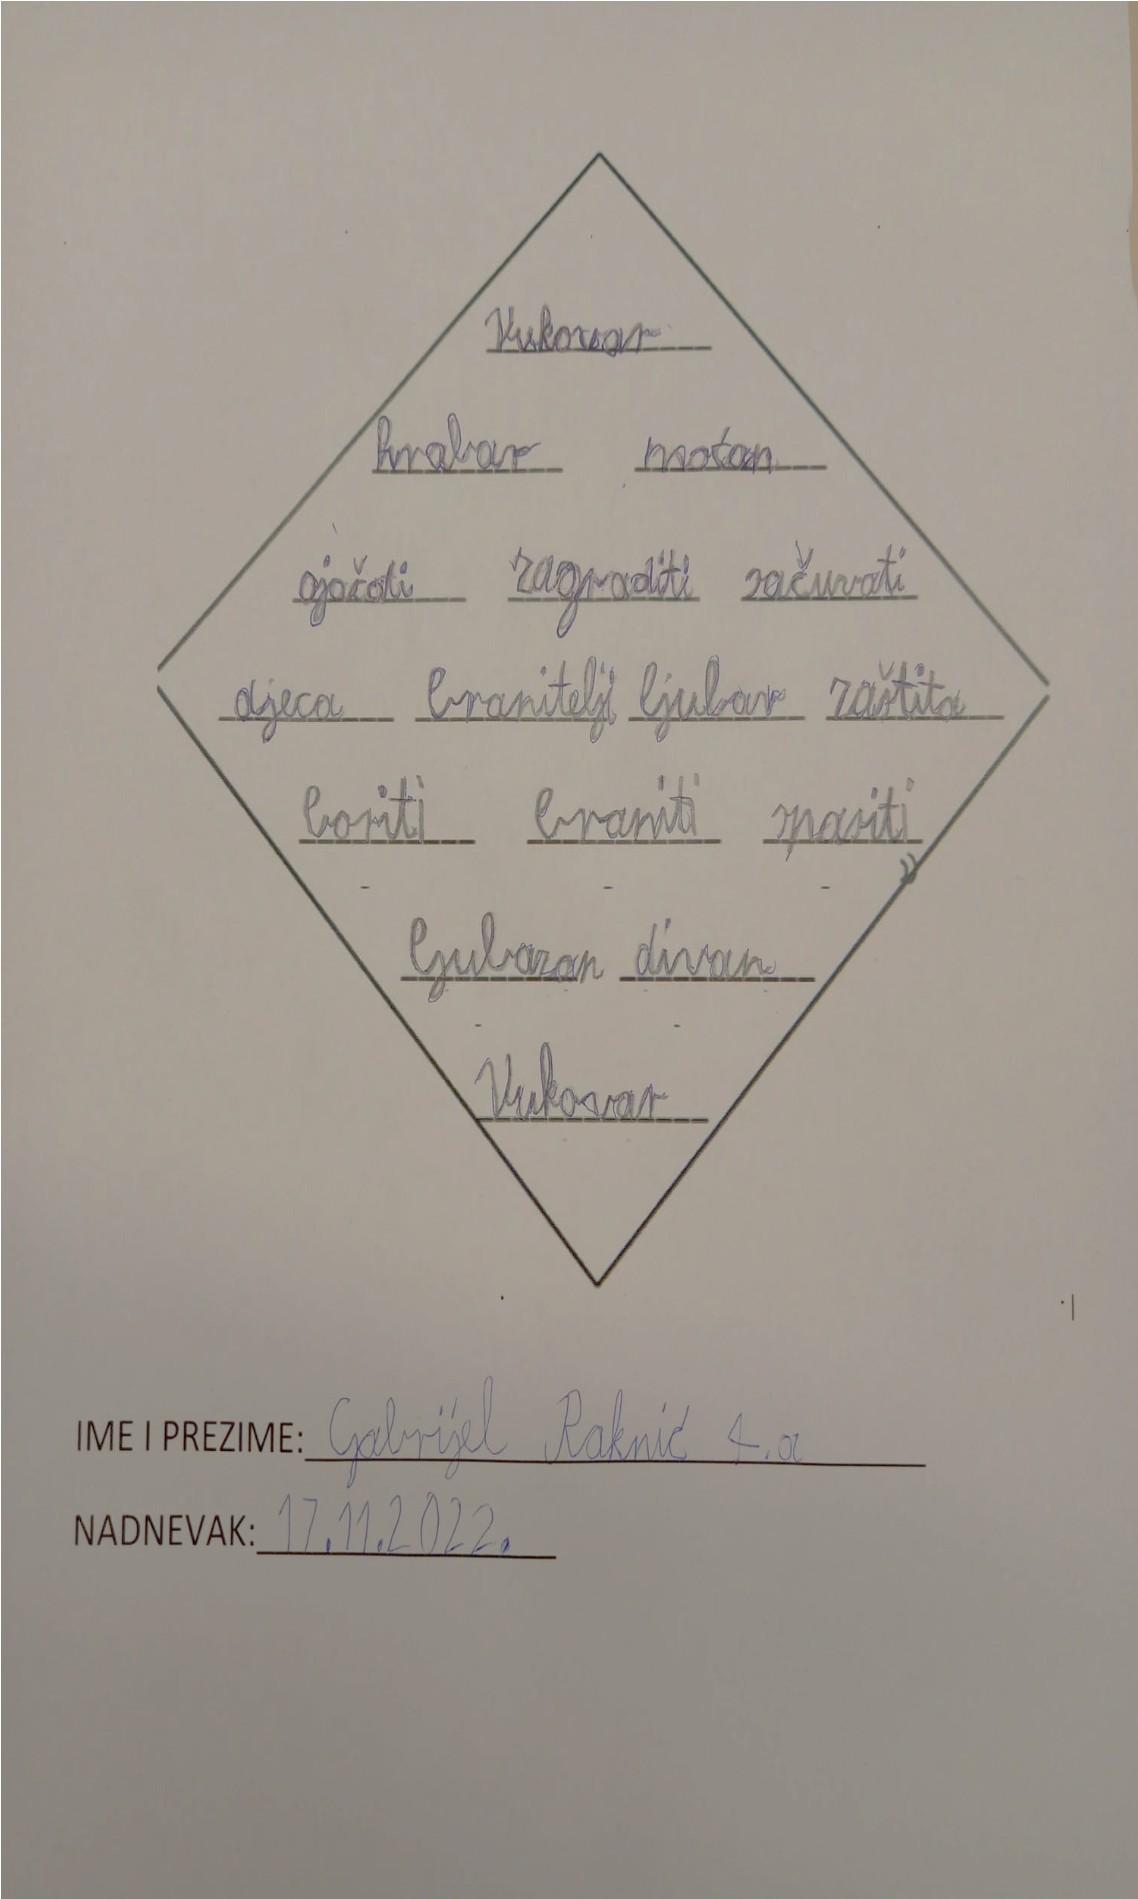 Vukovar
hrabar moćan
ojačati zagraditi sačuvati
djeca branitelji ljubav zaštita
boriti braniti spasiti
ljubazan divan
Vukovar
IME I PREZIME: Gabrijel Raknić 4.a
NADNEVAK: 17.11.2022.